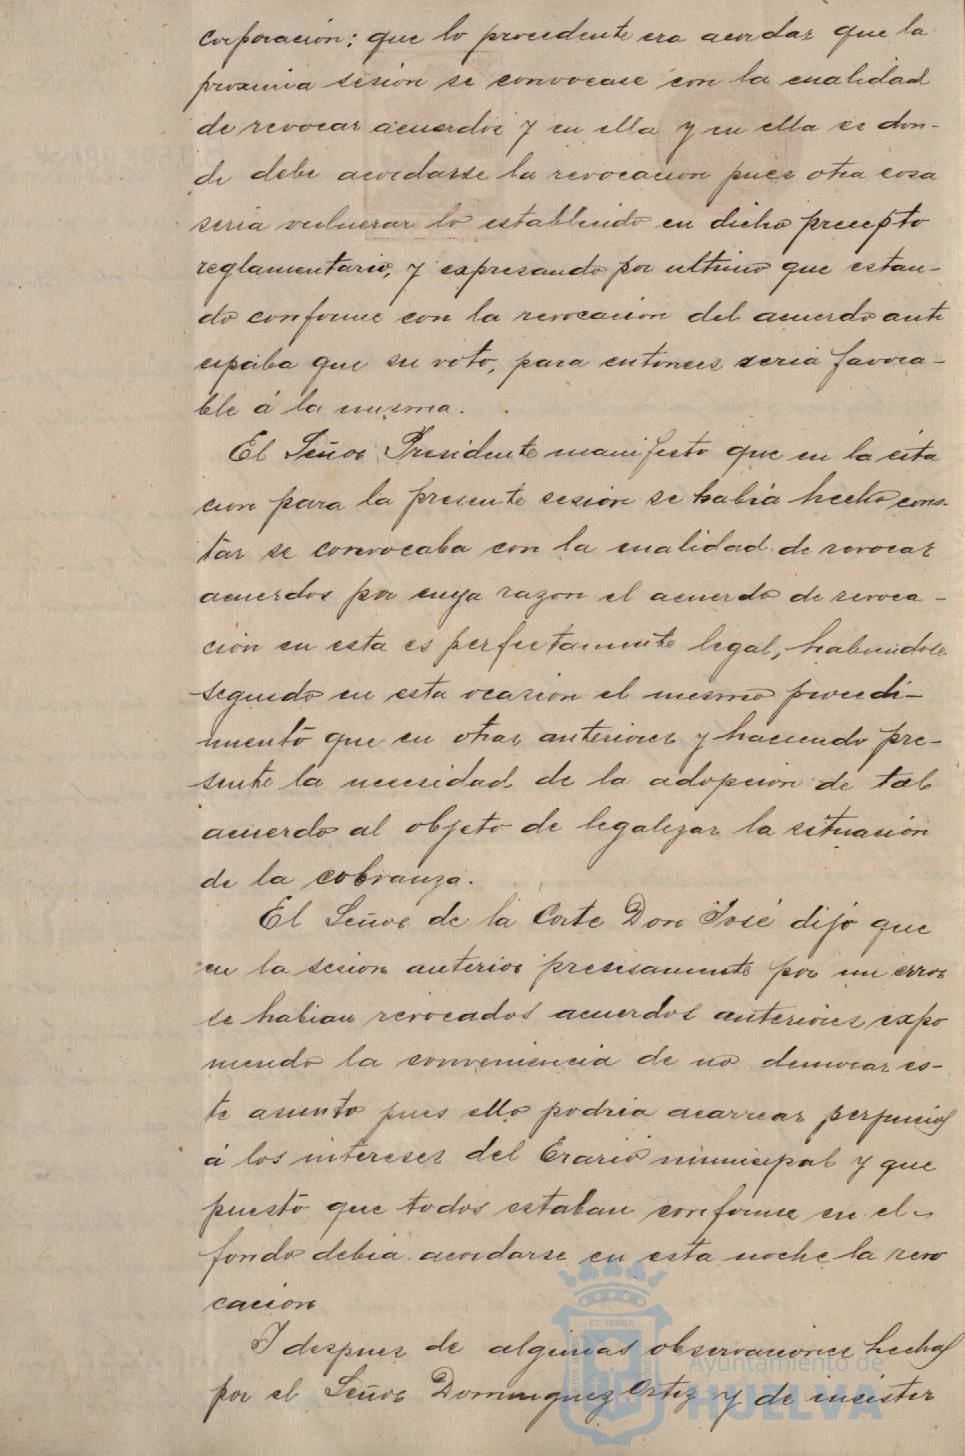 corporación; que lo procedente era acordar que la
proxima sesion se convocase con la cualidad
de revocar acuerdos y en ella y en ella es don-
de debe acordarse la revocacion pues otra cosa
seria vulnerar lo establecido en dicho precepto
reglamentario, y expresando por ultimo que estan-
do conforme con la revocacion del acuerdo anti
cipaba que su voto, para entonces seria favora-
ble á la misma.
El Señor Presidente manifesto que en la cita
cion para la presente sesion se habia hecho cons-
tar se convocaba con la cualidad de revocar
acuerdos por cuya razon el acuerdo de revoca-
ción en esta es perfectamente legal, habiendose
seguido en esta ocasion el mismo procedi-
miento que en otras anteriores y haciendo pre-
sente la necesidad de la adopcion de tal
acuerdo al objeto de legalizar la situación
de la cobranza.
El Señor de la Corte Don José dijo que
en la sesion anterior precisamente por un error
se habian revocados acuerdos anteriores expo
niendo la conveniencia de no demorar es-
te asunto pues ello podria acarrear perjuicios
á los intereses del Erario municipal y que
puesto que todos estaban conforme en el
fondo debia acordarse en esta noche la revo
cacion
I despues de algunas observaciones hechas
por el Señor Dominguez Ortiz y de insistir
ET TERRA
Ayuntamiento de
HUELVA